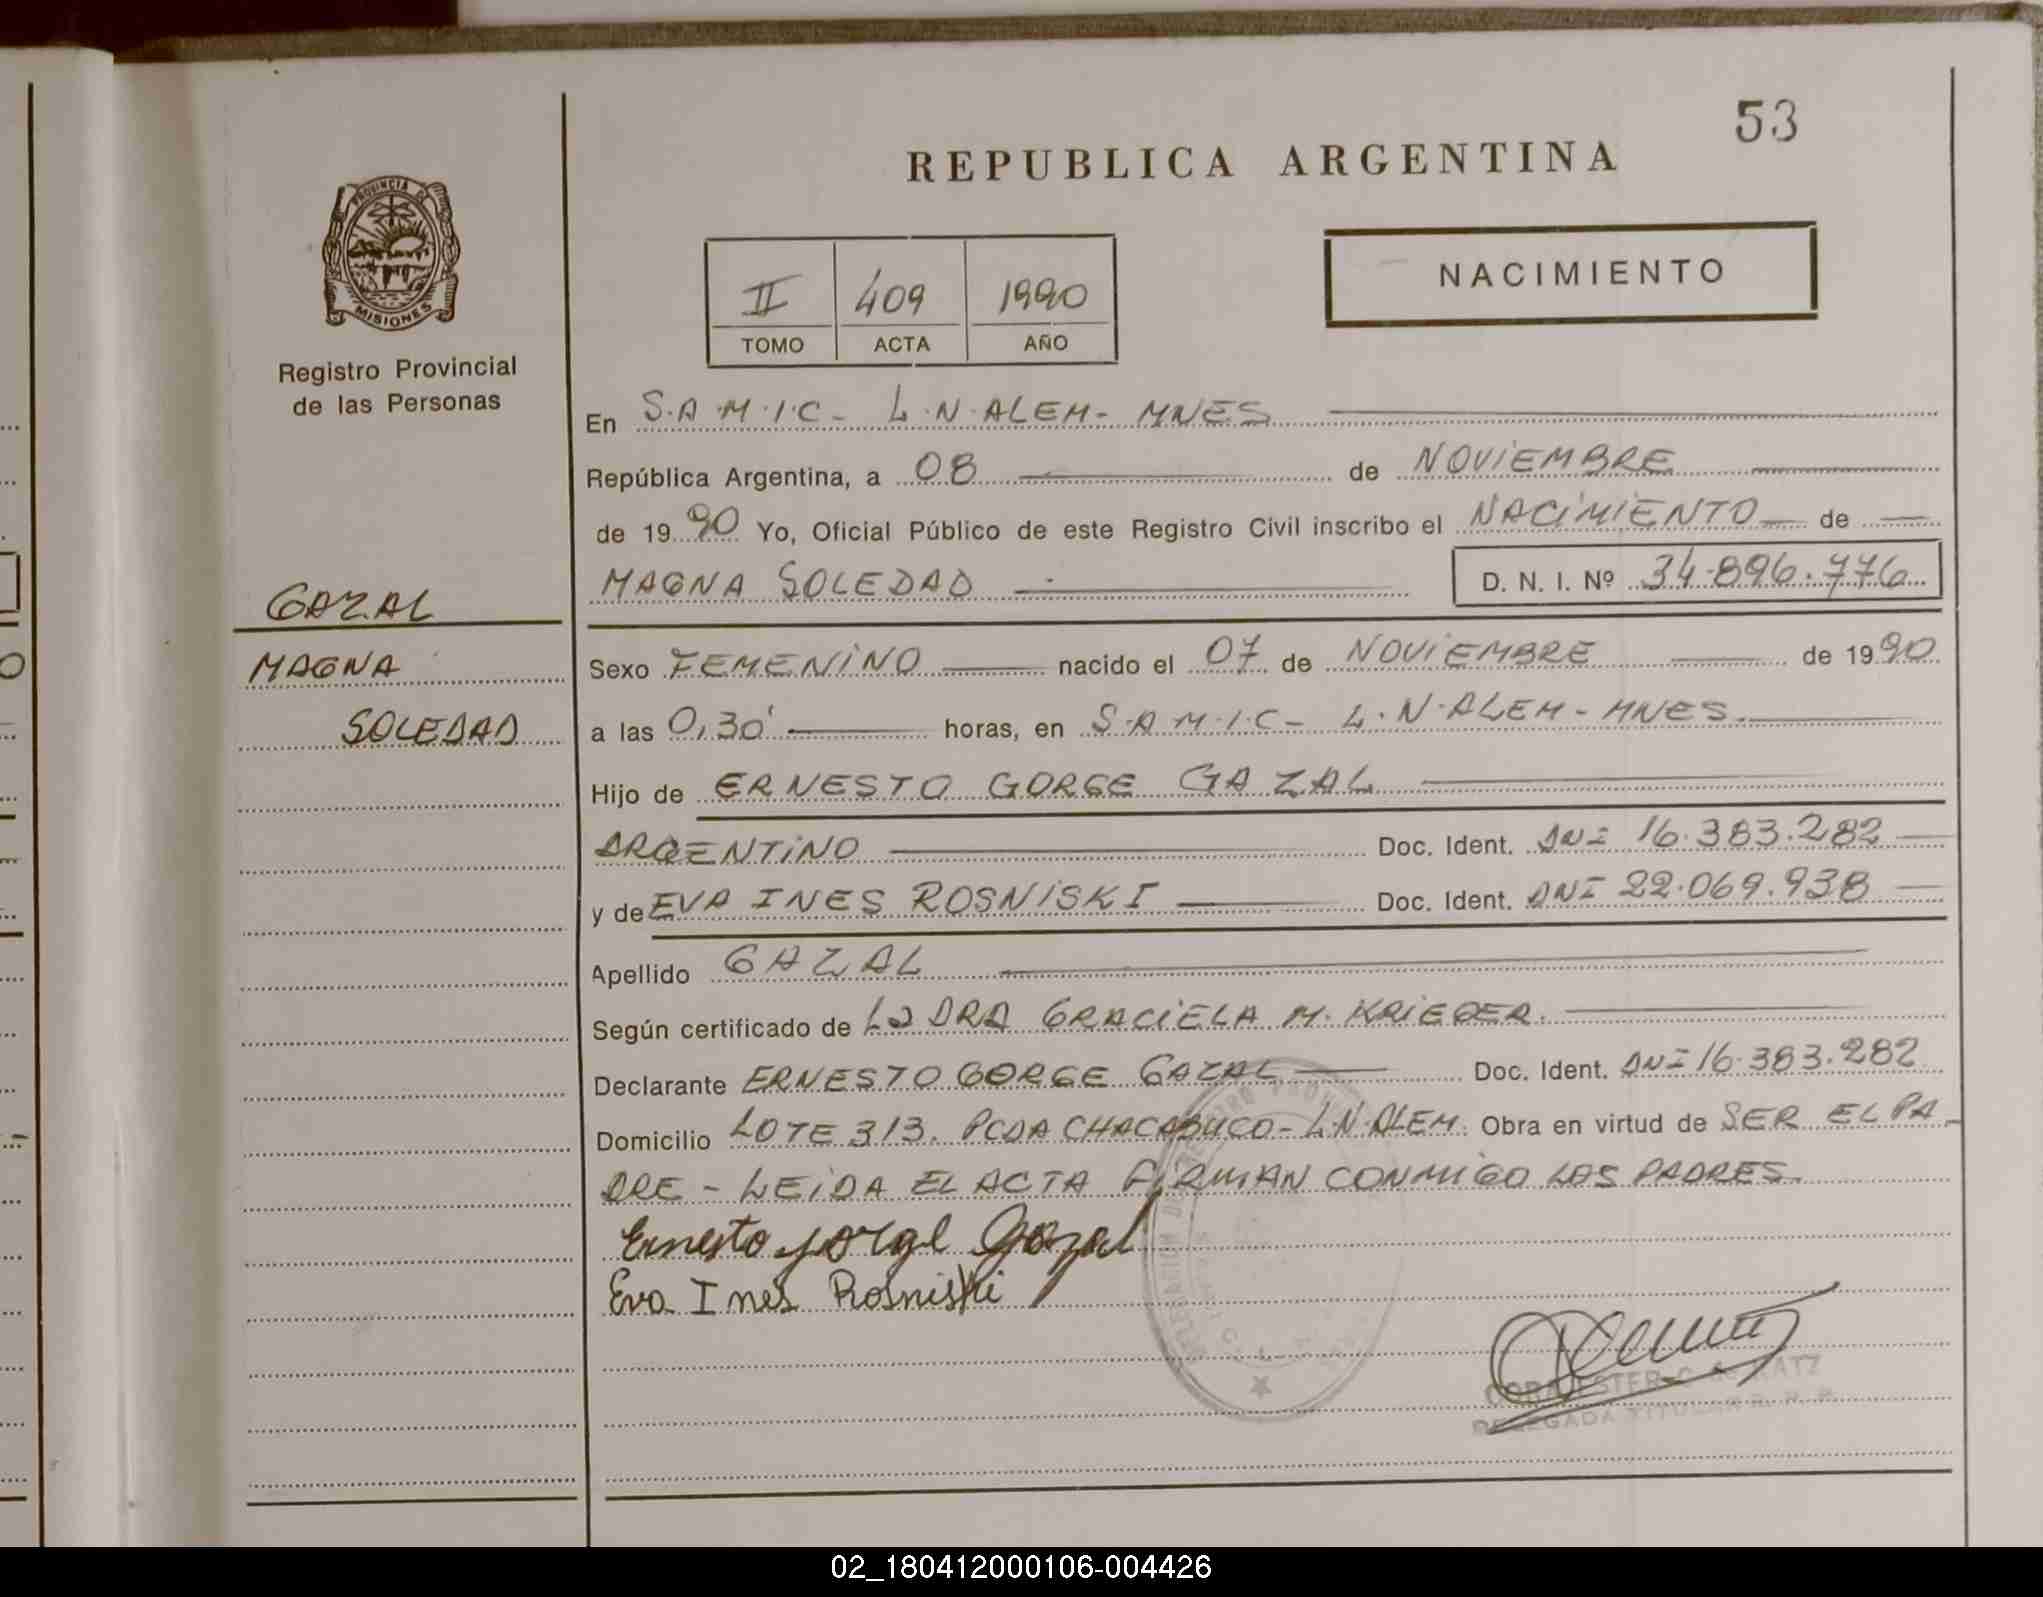 53
REPUBLICA ARGENTINA
PROVINCIA DE
MISIONES
Registro Provincial
de las Personas
II 409 1990
TOMO ACTA AÑO
NACIMIENTO
En S.A.M.I.C- L.N.ALEM- MNES
República Argentina, a 08 de NOVIEMBRE
de 1990 Yo, Oficial Público de este Registro Civil inscribo el NACIMIENTO de
MAGNA SOLEDAD D. N. I. Nº 34.896.776
GAZAL
MAGNA
SOLEDAD
Sexo FEMENINO nacido el 07 de NOVIEMBRE de 1990
a las 0,30' horas, en S.A.M.I.C- L.N.ALEM- MNES.
Hijo de ERNESTO GORGE GAZAL
ARGENTINO Doc. Ident. DNI 16.383.282
y de EVA INES ROSNISKI Doc. Ident. DNI 22.069.938
Apellido GAZAL
Según certificado de La DRA GRACIELA M. KRIEGER.
Declarante ERNESTO GORGE GAZAL Doc. Ident. DNI 16.383.282
Domicilio LOTE 313. PCDA CHACABUCO- L.N.ALEM. Obra en virtud de SER EL PA-
DRE - LEIDA EL ACTA FIRMAN CONMIGO LOS PADRES.
Ernesto Jorge Gazal
Eva Ines Rosniski
DELEGADA TITULAR R. P. P.
02_180412000106-004426